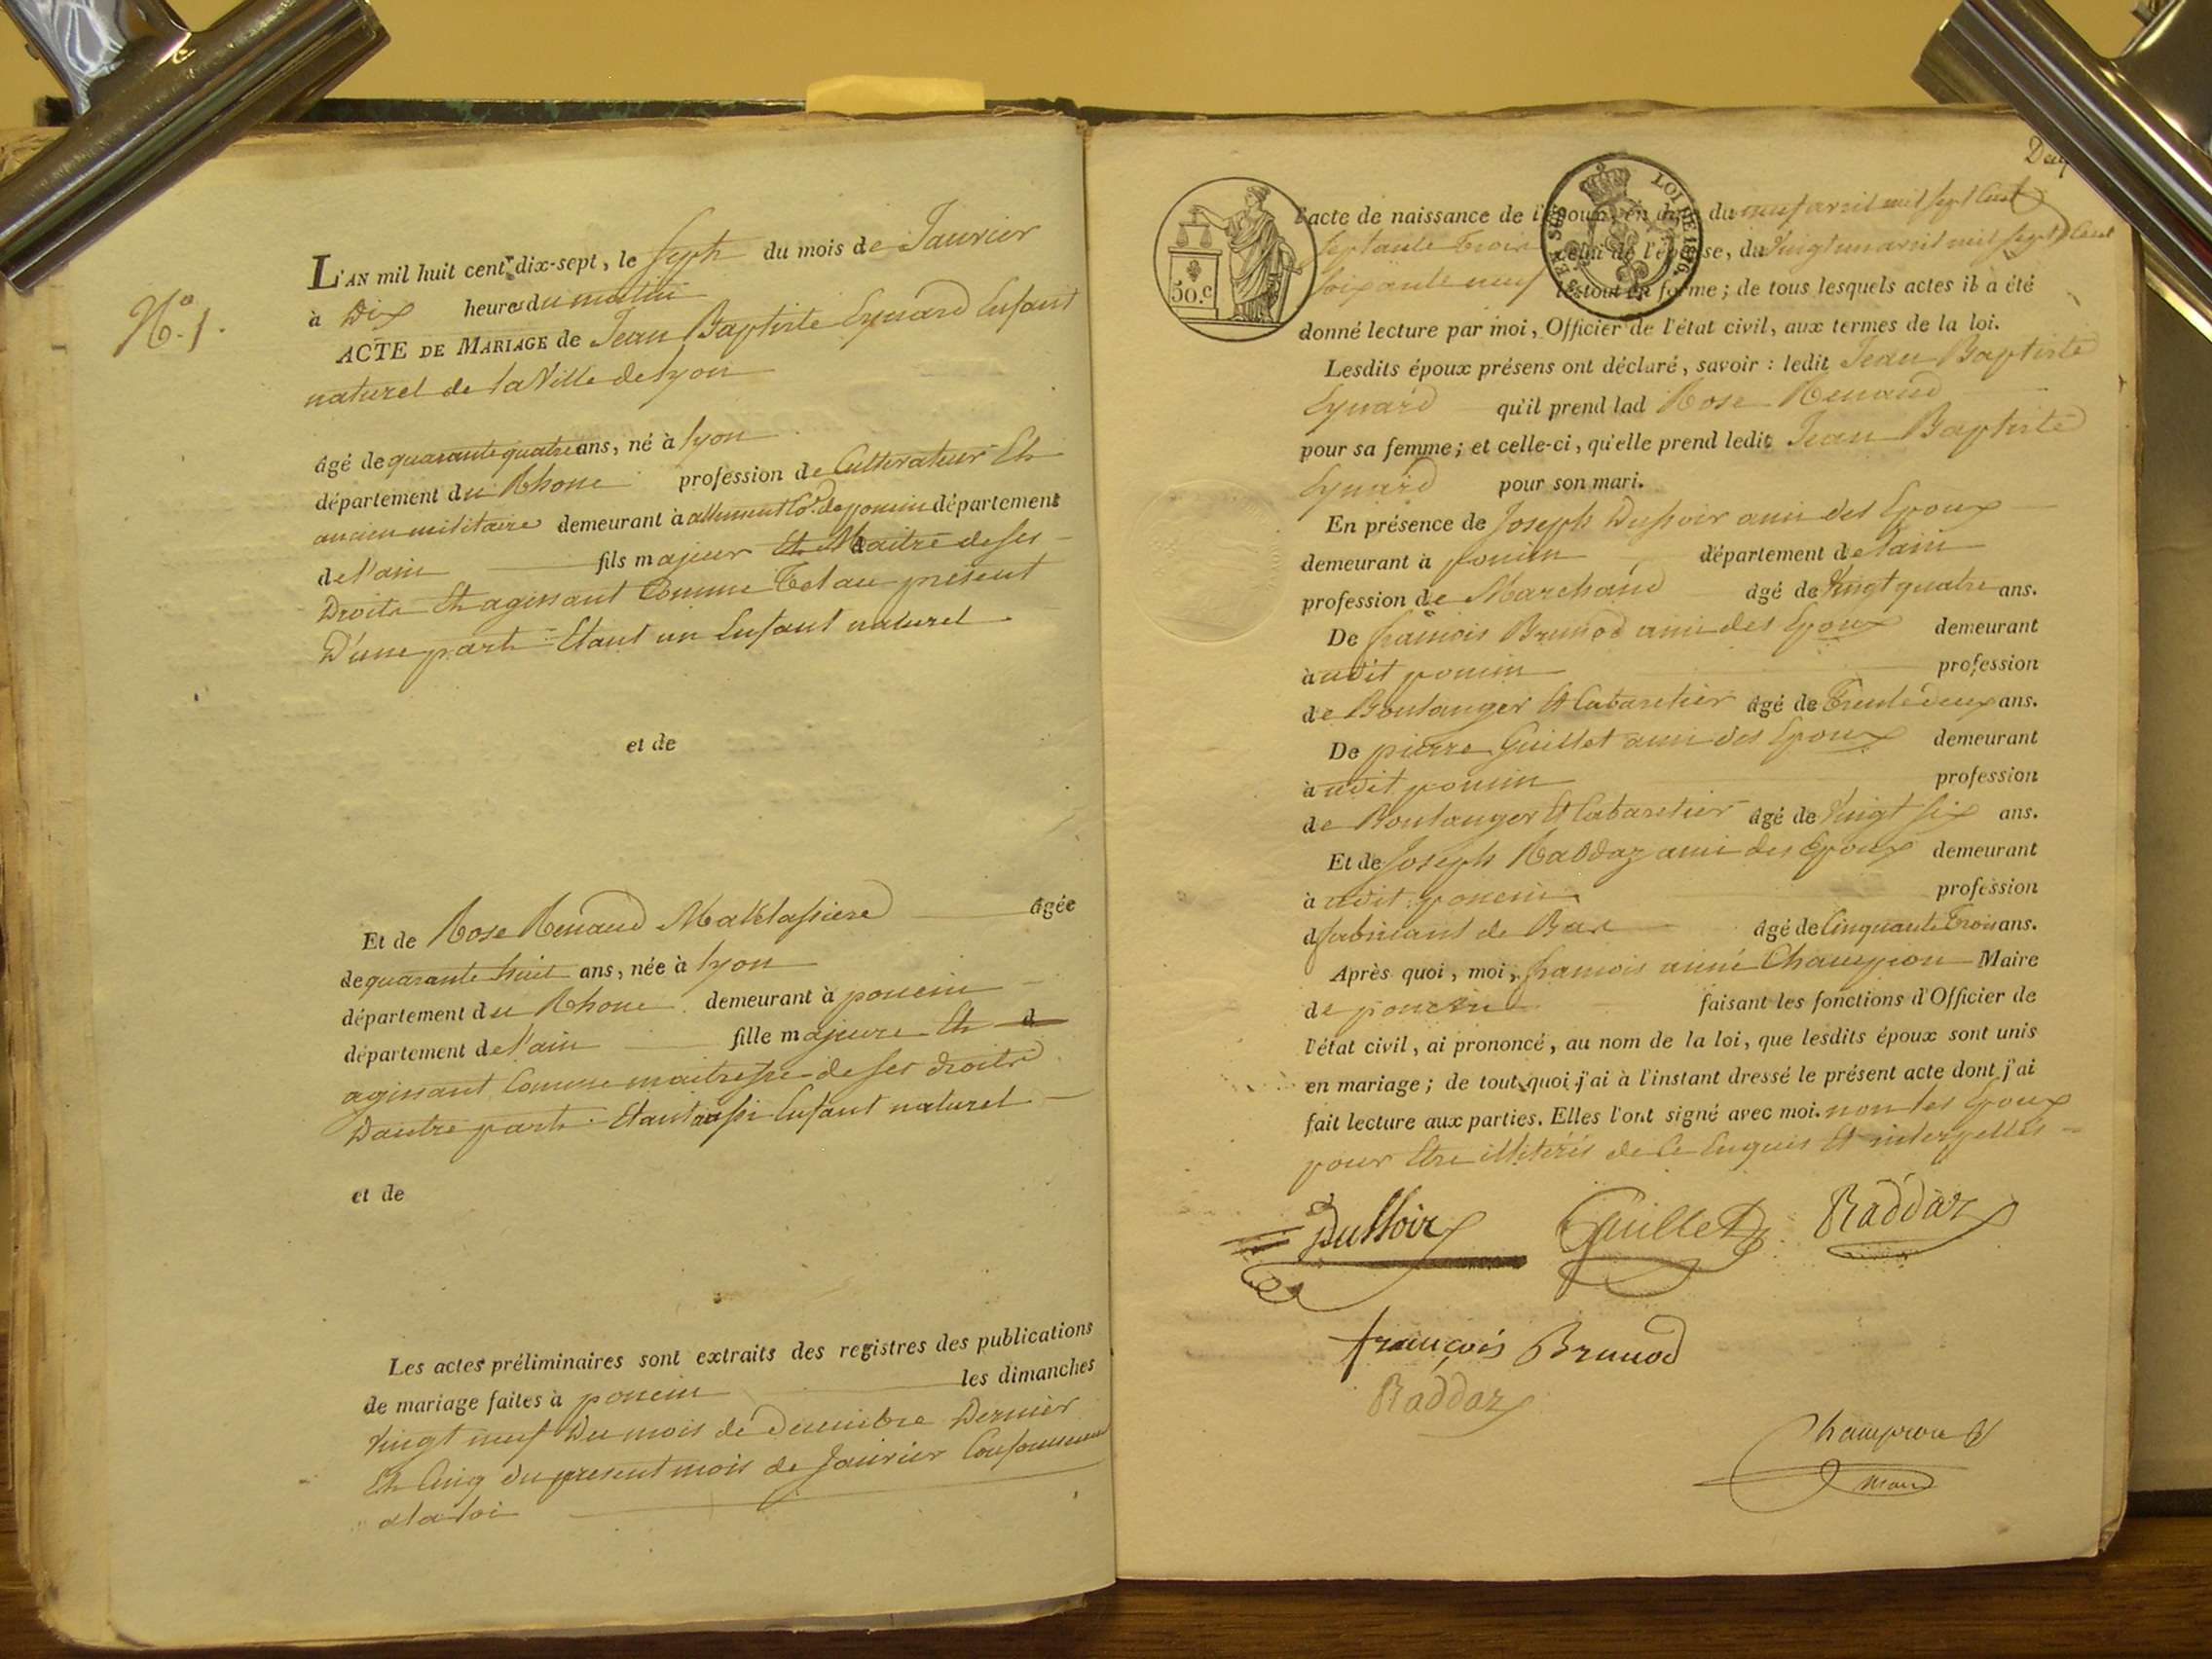 N.º 1.
L'AN mil huit cent dix-sept, le Sept du mois de Janvier
à Dix heures du matin
ACTE DE MARIAGE de Jean Baptiste Eynard Enfant
naturel de la Ville de lyon
âgé de quarante quatre ans, né à lyon
département du Rhone profession de Cultivateur Et
ancien militaire demeurant à allement Cne de poncin département
de l'ain fils majeur Et Maitre de ses
Droits Et agissant Comme Tel au présent
D'une part Etant un Enfant naturel
et de
Et de Rose Renaud âgée
de quarante huit ans, née à lyon
département du Rhone demeurant à poncin
département de l'ain fille majeure Et d
agissant Comme maitresse de ses droits
D'autre part. Etant aussi Enfant naturel
et de
Les actes préliminaires sont extraits des registres des publications
de mariage faites à poncin les dimanches
Vingt neuf Du mois de Decembre Dernier
Et Cinq du present mois de Janvier Conformement
a la loi
50.c
EN SUS
LOI DE 1816.
l'acte de naissance de l'époux, en date du neuf avril mil sept Cent
septante Trois celui de l'épouse, du Vingt un avril mil sept Cent
soixante neuf le tout en forme; de tous lesquels actes il a été
donné lecture par moi, Officier de l'état civil, aux termes de la loi.
Lesdits époux présens ont déclaré, savoir : ledit Jean Baptiste
Eynard qu'il prend lad Rose Renaud
pour sa femme; et celle-ci, qu'elle prend ledit Jean Baptiste
Eynard pour son mari.
En présence de Joseph Dussoir ami des Epoux
demeurant à poncin département de l'ain
profession de Marchand âgé de Vingt quatre ans.
De francois Brunod ami des Epoux demeurant
à udit poncin profession
de Boulanger Et Cabaretier âgé de Trente deux ans.
De pierre Guillet ami des Epoux demeurant
à udit poncin profession
de Boulanger Et Cabaretier âgé de Vingt six ans.
Et de Joseph Raddaz ami des Epoux demeurant
à udit poncin profession
d fabricant de Bas âgé de Cinquante Trois ans.
Après quoi, moi, francois aimé Champion Maire
de poncin faisant les fonctions d'Officier de
l'état civil, ai prononcé, au nom de la loi, que lesdits époux sont unis
en mariage; de tout quoi j'ai à l'instant dressé le présent acte dont j'ai
fait lecture aux parties. Elles l'ont signé avec moi. non les Epoux
pour Etre illiterés de Ce Enquis Et interpellés
Dussoir Guillet Raddaz
françois Brunod
Raddaz
Champion
maire